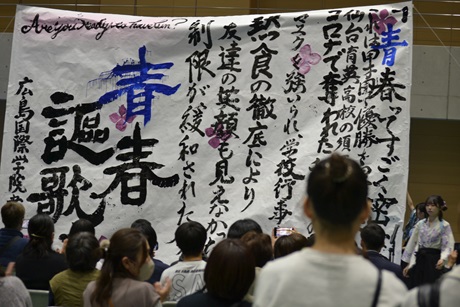 Are you ready to have fun?
青春ってすごく密
甲子園優勝を
仙台育英高校の須
コロナで奪われた
マスクを強いられ学校行事
黙食の徹底により
友達の笑顔も見えなか
制限が緩和された
青春
謳歌
広島国際学院